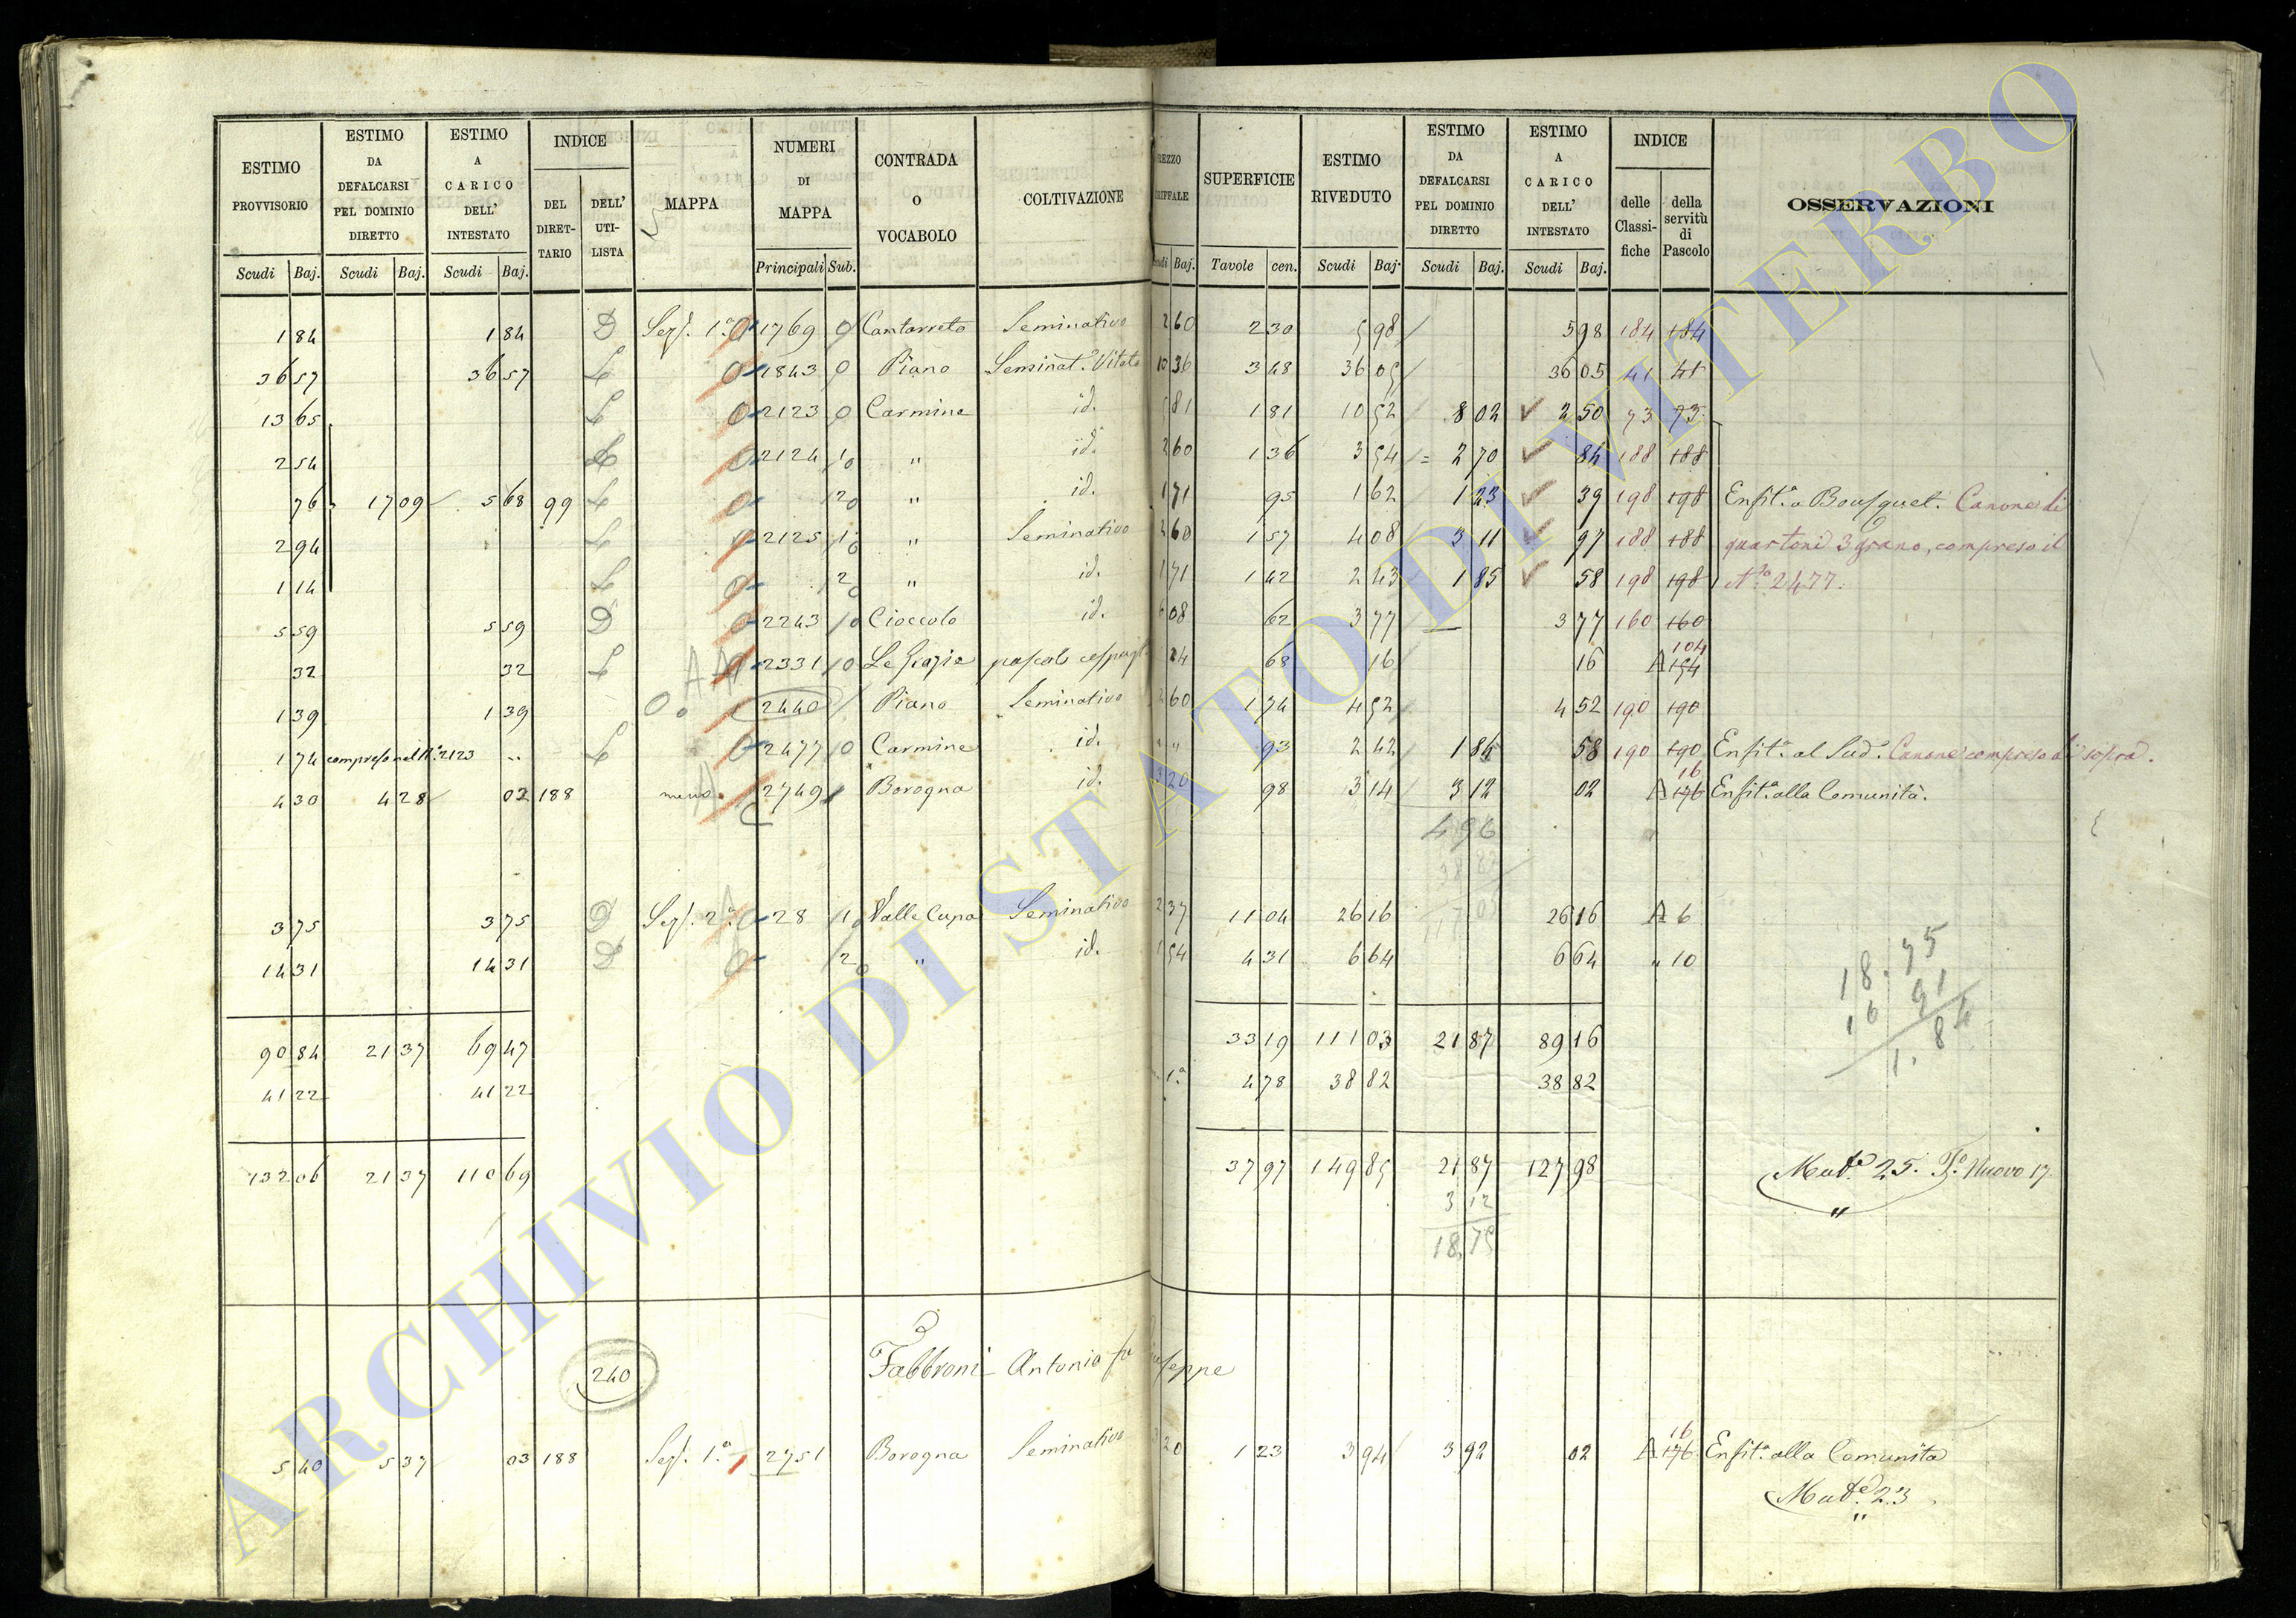 ESTIMO PROVVISORIO | ESTIMO DA DEFALCARSI PEL DOMINIO DIRETTO | ESTIMO A CARICO DELL' INTESTATO | INDICE | MAPPA | NUMERI DI MAPPA | CONTRADA O VOCABOLO | COLTIVAZIONE | SUPERFICIE | ESTIMO RIVEDUTO | ESTIMO DA DEFALCARSI PEL DOMINIO DIRETTO | ESTIMO A CARICO DELL' INTESTATO | INDICE | OSSERVAZIONI
DEL DIRETTARIO | DELL' UTILISTA | delle Classifiche | della servitù di Pascolo
Scudi | Baj. | Scudi | Baj. | Scudi | Baj. | Principali | Sub. | Baj. | Tavole | cen. | Scudi | Baj. | Scudi | Baj. | Scudi | Baj.
1 84 | 1 84 | D | Sez. 1.a | 1769 | 0 | Cantorreto | Seminativo | 2 60 | 2 30 | 5 98 | 5 98 | 184 | 184
36 57 | 36 57 | L | 1843 | 0 | Piano | Seminat. Vitato | 10 36 | 3 48 | 36 05 | 36 05 | 41 | 41
13 65 | L | 2123 | 0 | Carmine | id. | 5 81 | 1 81 | 10 52 | 8 02 | 2 50 | 73 | 73
2 54 | L | 2124 | 1 | " | id. | 2 60 | 1 36 | 3 54 | 2 70 | 84 | 188 | 188
76 | 17 09 | 5 68 | 99 | L | 2 | " | id. | 1 71 | 95 | 1 62 | 1 23 | 39 | 198 | 198 | Enfit.a a Bousquet. Canone di
2 94 | L | 2125 | 1 | " | Seminativo | 2 60 | 1 57 | 4 08 | 3 11 | 97 | 188 | 188 | quartoni 3 grano, compreso il
1 14 | L | 2 | " | id. | 1 71 | 1 42 | 2 43 | 1 85 | 58 | 198 | 198 | N.o 2477.
5 59 | 5 59 | D | 2243 | 0 | Cioccolo | id. | 6 08 | 62 | 3 77 | 3 77 | 160 | 160
32 | 32 | L | 2331 | 0 | Le Grazie | pascolo cespugl | 24 | 68 | 16 | 16 | A | 154 | 104
1 39 | 1 39 | 2440 | Piano | Seminativo | 2 60 | 1 74 | 4 52 | 4 52 | 190 | 190
1 74 | compreso nel N.o 2123 | " | L | 2477 | 0 | Carmine | id. | " " | 93 | 2 42 | 1 84 | 58 | 190 | 190 | Enfit.a al Sud.o Canone compreso di sopra.
4 30 | 4 28 | 02 | 188 | 2749 | Borogna | id. | 3 20 | 98 | 3 14 | 3 12 | 02 | A | 176 | 16 | Enfit.a alla Comunità.
4 96
3 75 | 3 75 | D | Sez. 2.a | 28 | 1 | Valle Cupa | Seminativo | 2 37 | 11 04 | 26 16 | 26 16 | A | 6
14 31 | 14 31 | D | 2 | " | id. | 1 54 | 4 31 | 6 64 | 6 64 | " | 10
18.75
16 91
1.84
90 84 | 21 37 | 69 47 | 33 19 | 111 03 | 21 87 | 89 16
41 22 | 41 22 | 1.a | 4 78 | 38 82 | 38 82
132 06 | 21 37 | 110 69 | 37 97 | 149 85 | 21 87 | 127 98 | Mad.e 25. F.o Nuovo 17.
3 12
18,75
240 | Fabbroni Antonio fu Giuseppe
5 40 | 5 37 | 03 | 188 | Sez. 1.a | 2751 | Borogna | Seminativo | 3 20 | 1 23 | 3 94 | 3 92 | 02 | A | 176 | 16 | Enfit.a alla Comunità
Mad.e 23
ARCHIVIO DI STATO DI VITERBO